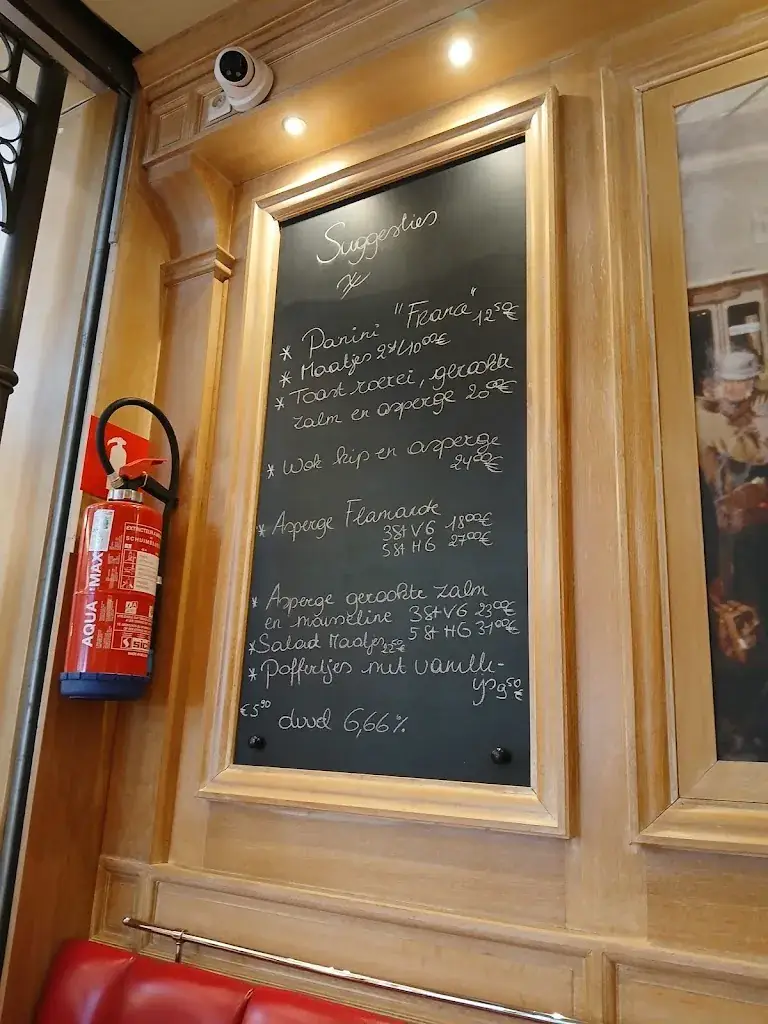 Suggesties
* Panini "France" 12⁵⁰€
* Maatjes 2st/10⁰⁰€
* Toast roerei, gerookte
zalm en asperge 20⁰⁰€
* Wok kip en asperge
24⁰⁰€
* Asperge Flamande
3St VG 18⁰⁰€
5St HG 27⁰⁰€
* Asperge gerookte zalm
en mousseline 3St VG 23⁰⁰€
5St HG 31⁰⁰€
* Salad Maatjes
* Poffertjes met vanille-
ijs 9⁵⁰€
€5⁹⁰ duvel 6,66%
AQUA MAX
SICLI